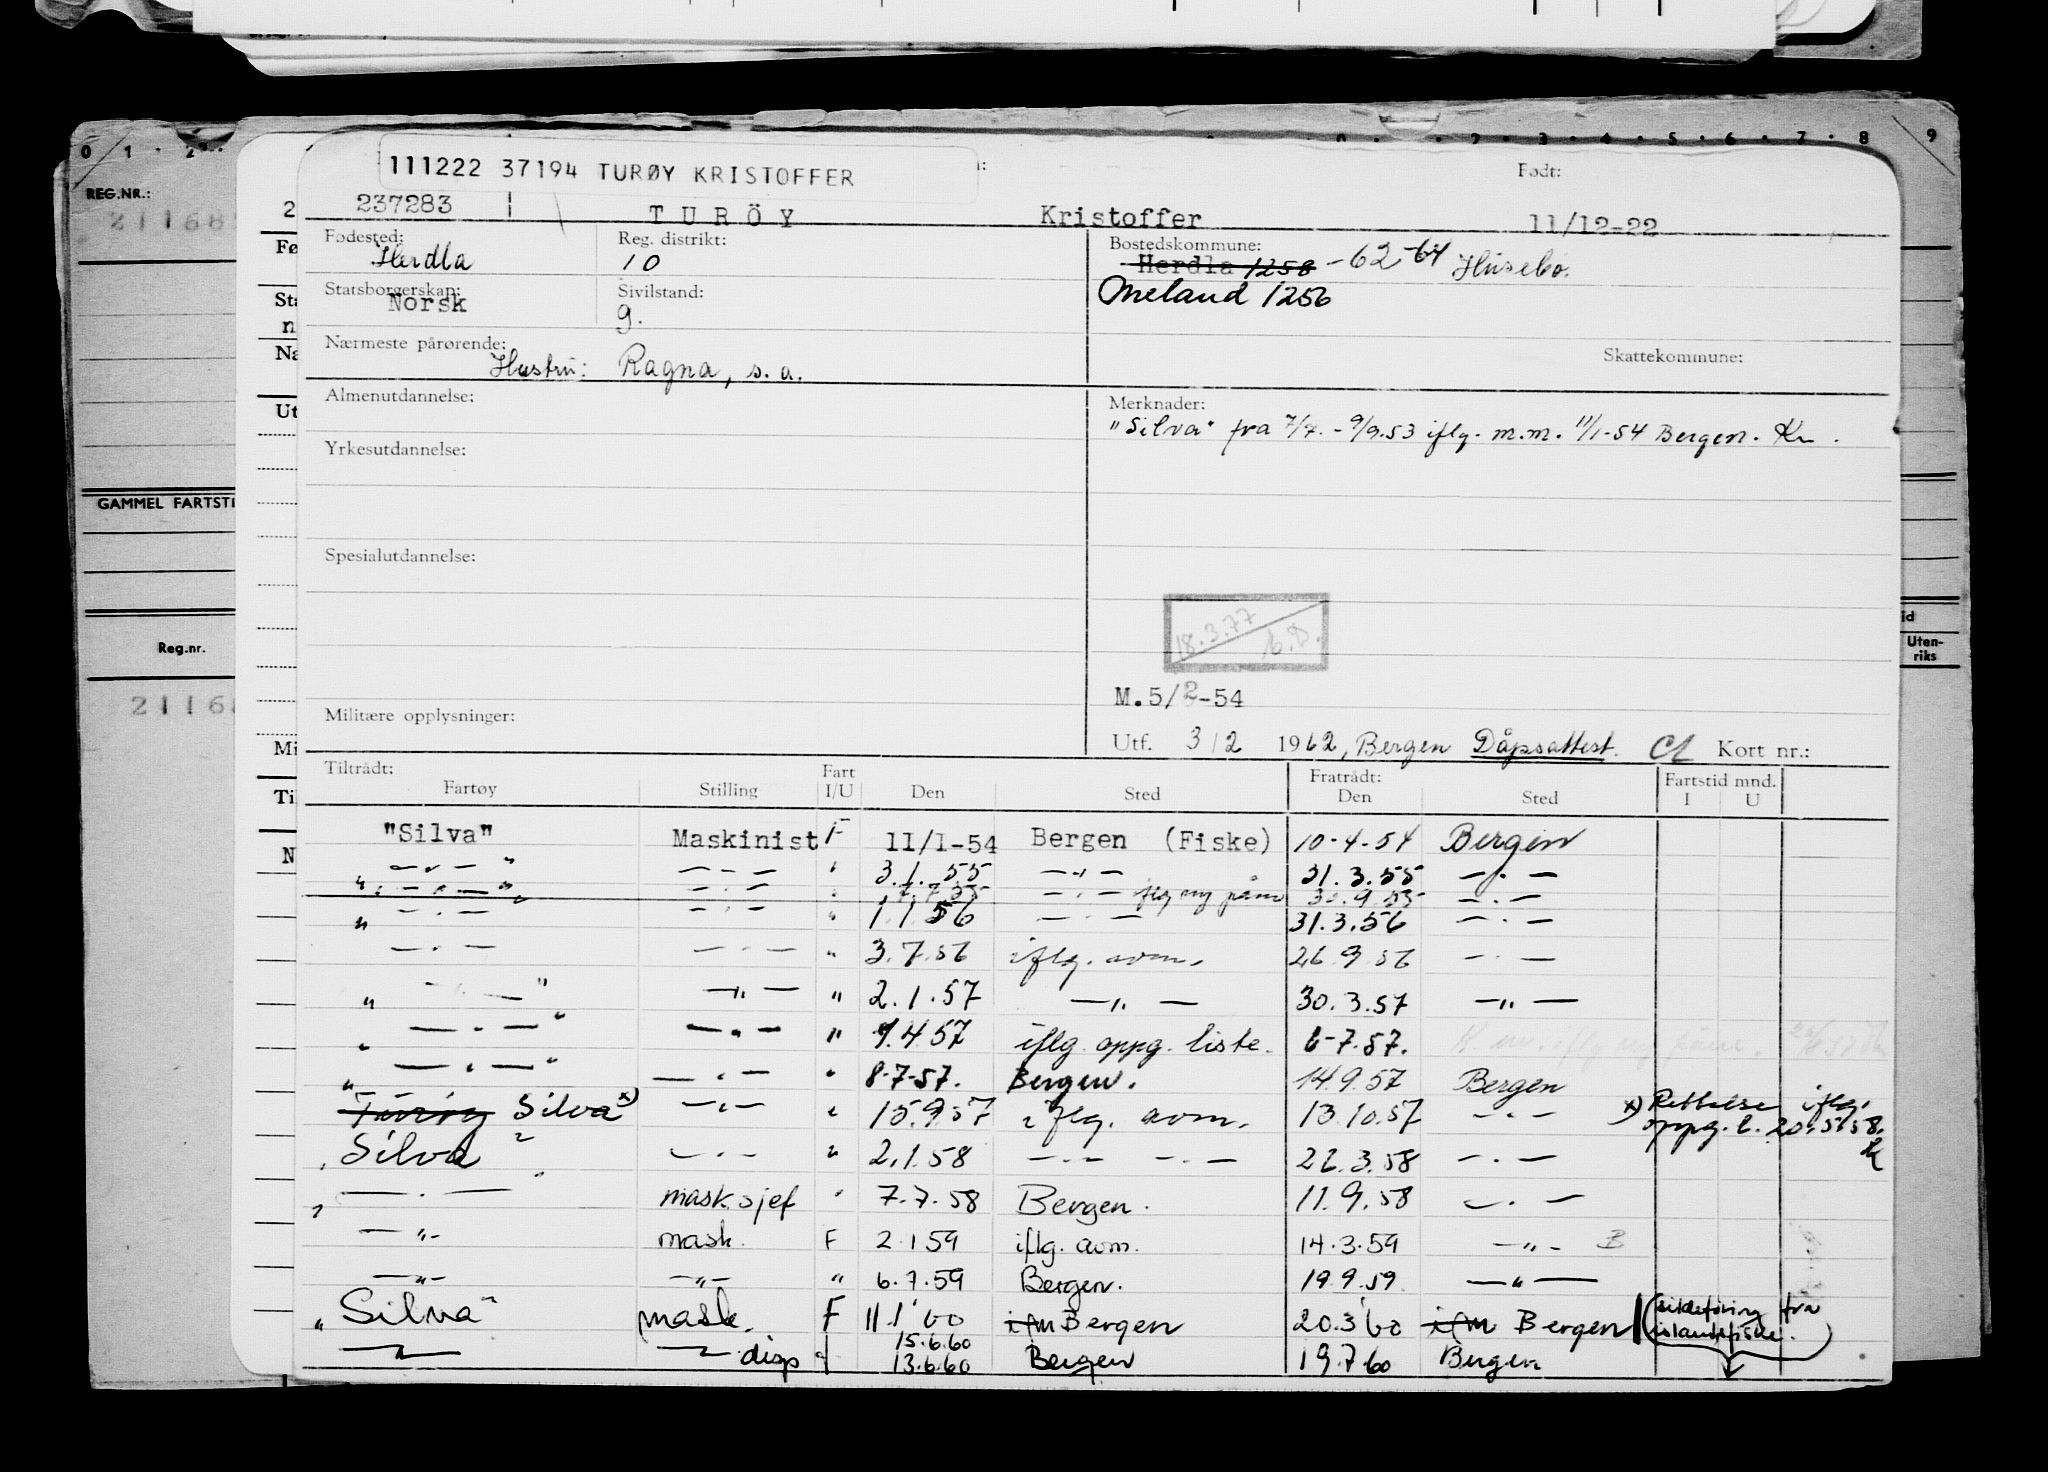 0 1 2 2 3 4 5 6 7 8 9
REG.NR.:
GAMMEL FARTSTI
Reg.nr.
2116
111222 37194 TURØY KRISTOFFER
Født:
237283 TURÖY Kristoffer 11/12-22
Fødested: Herdla
Reg. distrikt: 10
Bostedskommune: Herdla 1258 -62-64 Husebø.
Meland 1256
Statsborgerskap: Norsk
Sivilstand: g.
Nærmeste pårørende: Hustru: Ragna, s.a.
Skattekommune:
Almenutdannelse:
Merknader:
"Silva" fra 7/7. - 9/9.53 iflg. m.m. 11/1-54 Bergen. Kr.
Yrkesutdannelse:
Spesialutdannelse:
18.3.77
M.5/2-54
Militære opplysninger:
Utf. 3/2 1962, Bergen Dåpsattest. Kort nr.:
Tiltrådt: Fart Fratrådt: Fartstid mnd.
Fartøy Stilling I/U Den Sted Den Sted I U
"Silva" Maskinist F 11/1-54 Bergen (Fiske) 10-4-54 Bergen
— " — — " — " 3.1.55 — " — 31.3.55 — " —
— " — — " — 7.7.55 — " — iflg ny påm 30.9.55 — " —
— " — — " — " 1.1.56 — " — 31.3.56 — " —
— " — — " — " 3.7.56 iflg. avm. 26.9.56 — " —
— " — — " — " 2.1.57 — " — 30.3.57 — " —
— " — — " — " 9.4.57 iflg. oppg. liste. 6-7.57.
— " — — " — " 8-7-57. Bergen. 14.9.57 Bergen
Turöy Silva x) — " — " 15.9.57 iflg. avm. 13.10.57 — " — x) Rettelse iflg.
oppg. l. 20.5.58.
Silva — " — " 2.1.58 — " — — " — 26.3.58 — " —
— " — mask.sjef " 7.7.58 Bergen. 11.9.58 — " —
— " — mask. F 2.1 59 iflg. avm. 14.3.59 — " — B
— " — — " — " 6.7.59 Bergen. 19.9.59. — " —
"Silva" mask. F 11.1'60 ifm Bergen 20.3'60 ifm Bergen (sildeföring fra
islandsfiske.)
15.6.60
— " — — " — disp 13.6.60 Bergen 19.7.60 Bergen
id
Uten-
riks